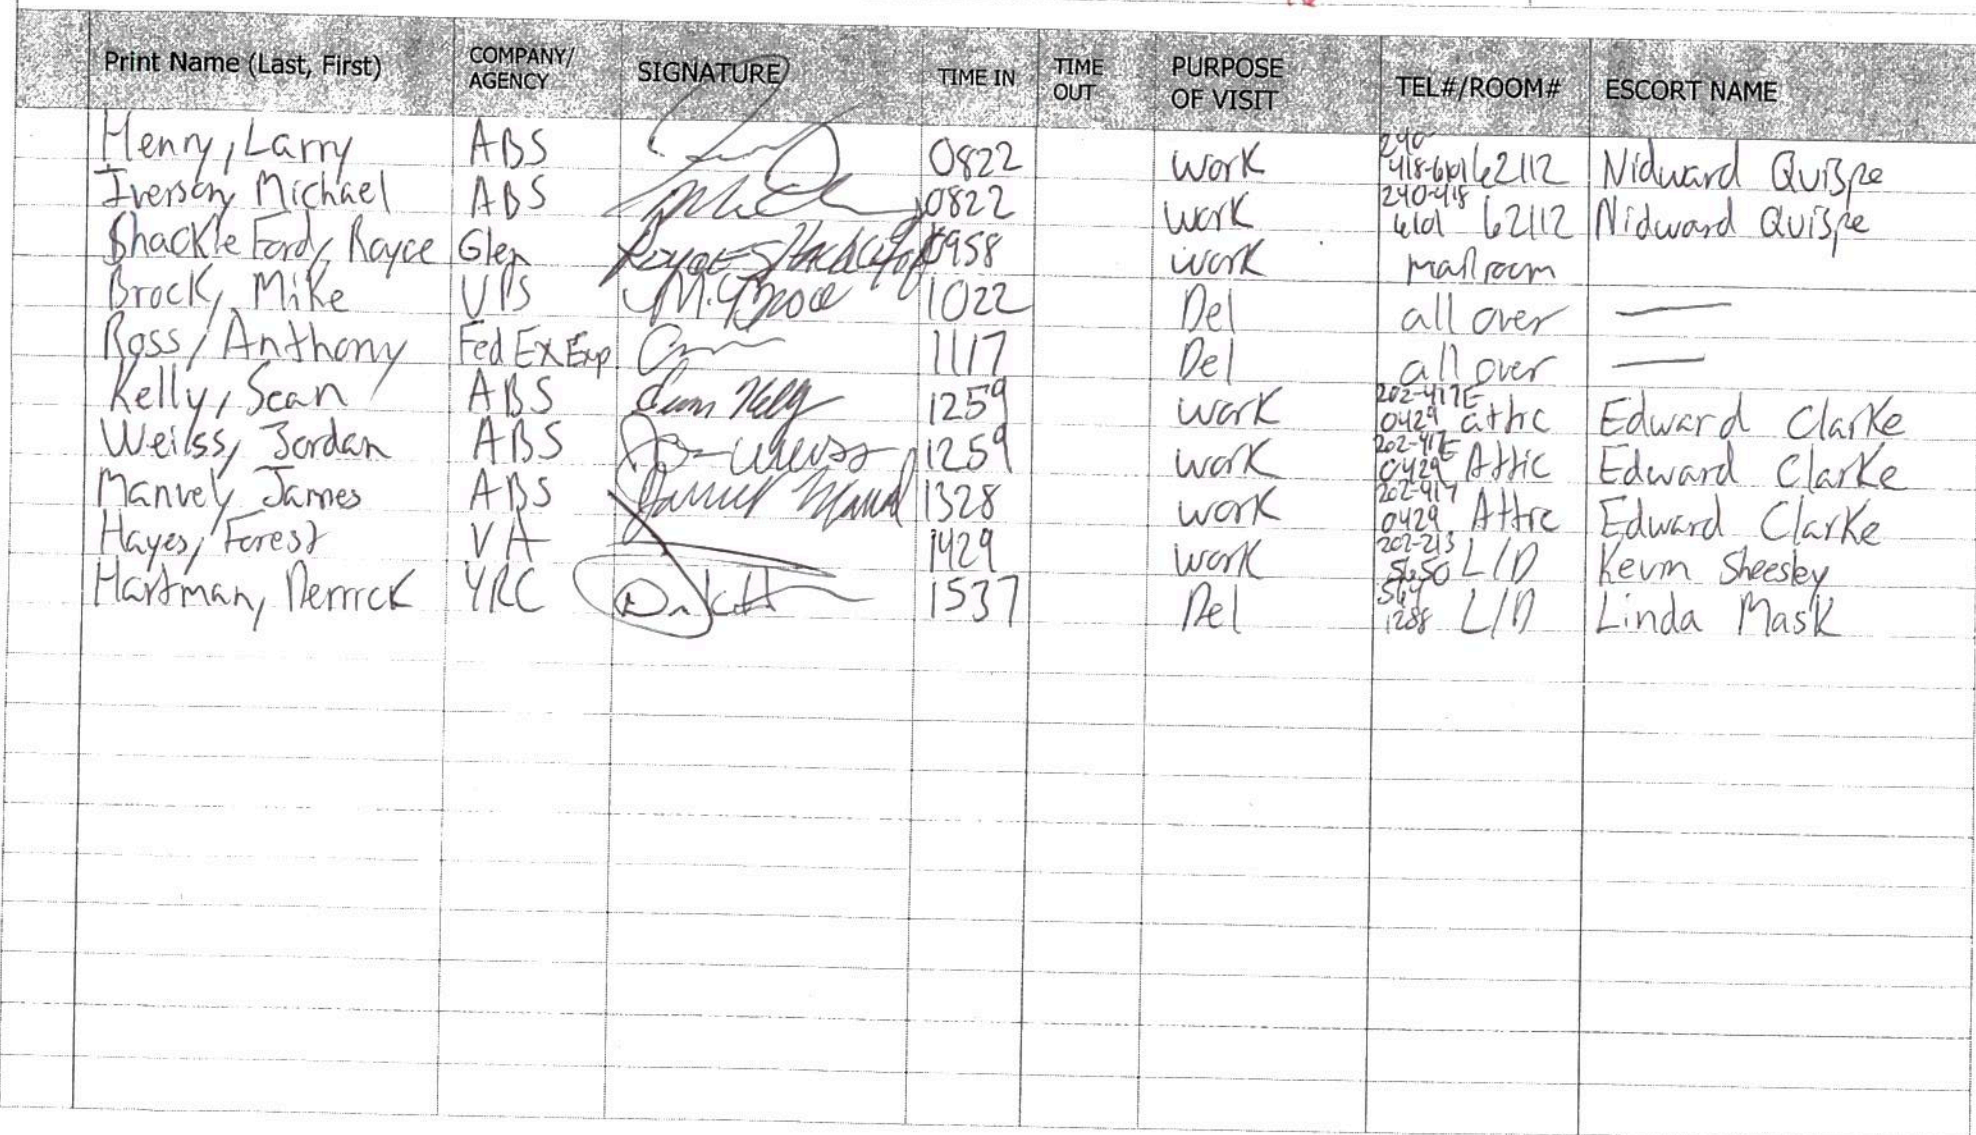 Print Name (Last, First) COMPANY/ AGENCY SIGNATURE TIME IN TIME OUT PURPOSE OF VISIT TEL#/ROOM# ESCORT NAME
Henry, Larry ABS 0822 work 240 418-6101 62112 Nidward Quispe
Iverson, Michael ABS 0822 work 240-418 6101 62112 Nidward Quispe
Shackle Ford, Royce 0958 work mailroom
Brock, Mike UPS M. Brock 1022 Del all over —
Ross, Anthony Fed Ex Exp 1117 Del all over —
Kelly, Sean ABS Sean Kelly 1259 work 202-417 0429 E attic Edward Clarke
Weilss, Jordan ABS 1259 work 202-417 0429 E Attic Edward Clarke
Manvel, James ABS 1328 work 202-417 0429 Attic Edward Clarke
Hayes, Forest VA 1429 work 202-213 5650 L/D Kevin Sheesley
Hartman, Derrick YRC 1537 Del 1288 L/D Linda Mask